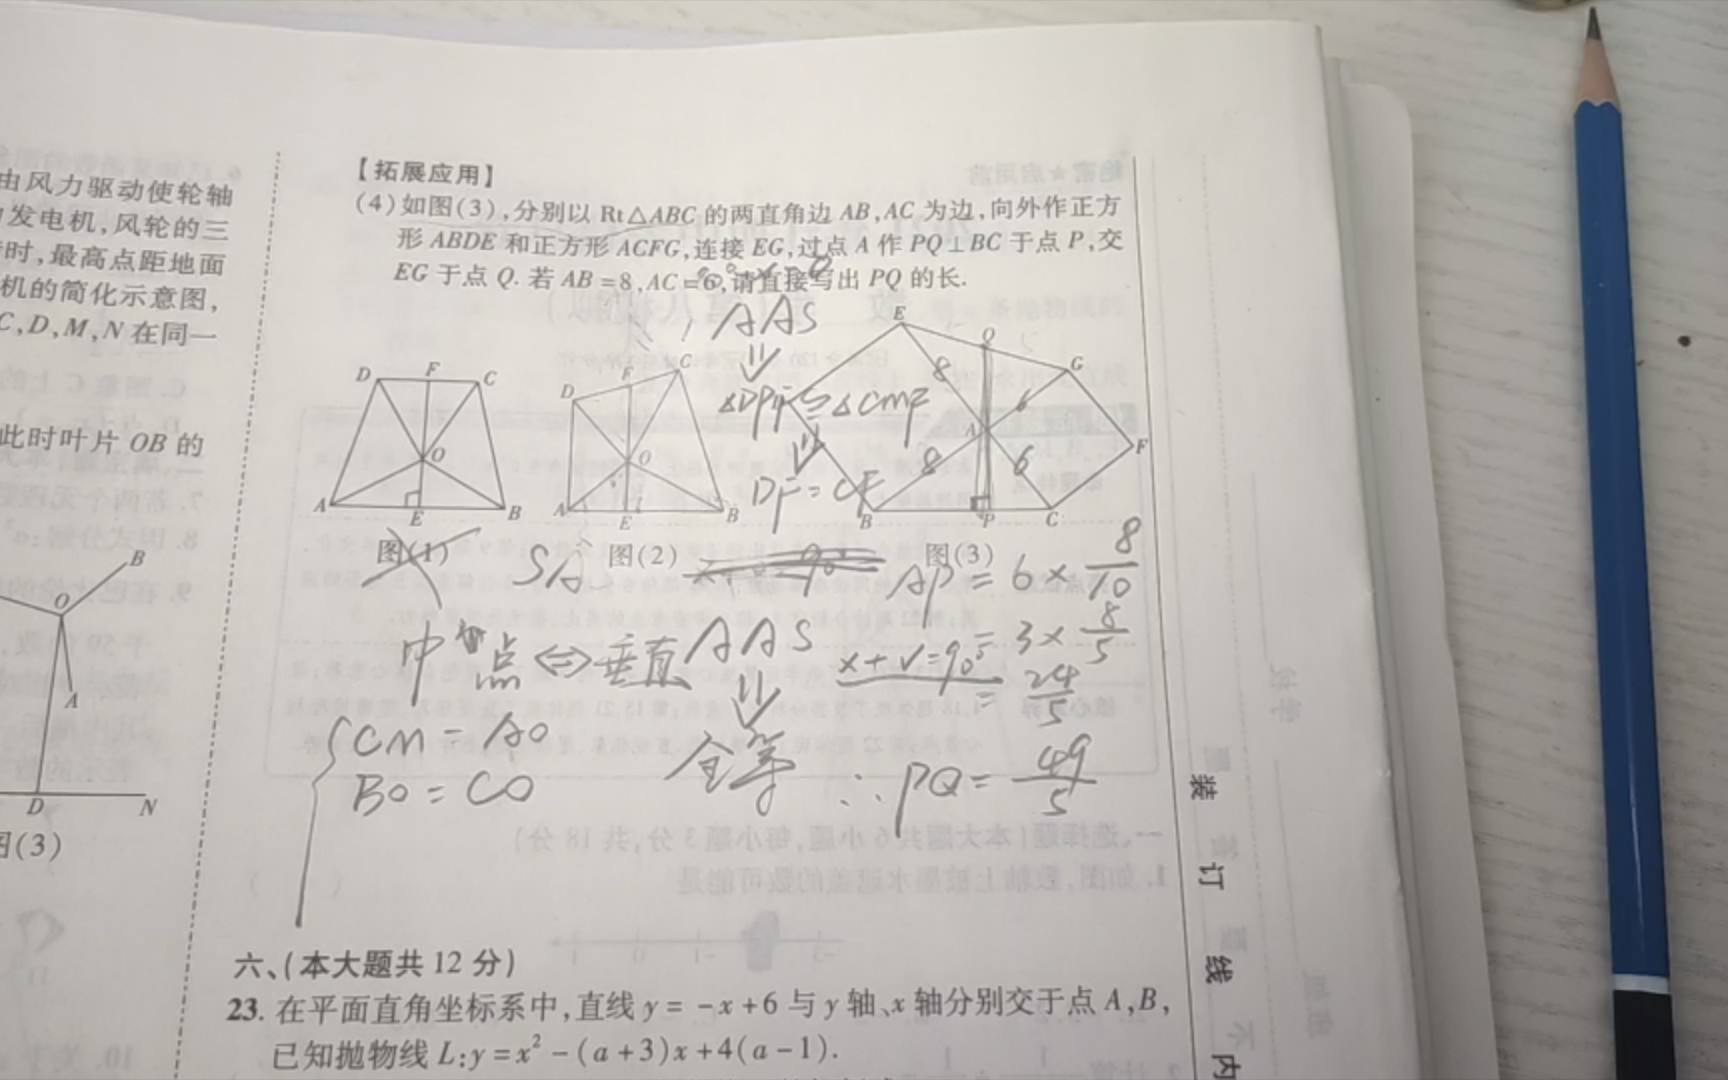 由风力驱动使轮轴
发电机,风轮的三
时,最高点距地面
机的简化示意图,
C,D,M,N在同一
此时叶片OB的
B
O
A
D N
图(3)
【拓展应用】
(4)如图(3),分别以Rt△ABC的两直角边AB,AC为边,向外作正方
形ABDE和正方形ACFG,连接EG,过点A作PQ⊥BC于点P,交
EG于点Q.若AB=8,AC=6,请直接写出PQ的长.
AAS
⇓
D F C
O
A E B
图(1)
D F C
O
A E B
图(2)
E Q G
8 6
A F
8 6
B P C
图(3)
≌△CMF
⇓
DF=CF
AP=6×8/10
=3×8/5
=24/5
中点⇔垂直
AAS
⇓
全等
CM=AO
BO=CO
∴PQ=49/5
六、(本大题共12分)
23.在平面直角坐标系中,直线y=-x+6与y轴、x轴分别交于点A,B,
已知抛物线L:y=x²-(a+3)x+4(a-1).
装
订
线
内